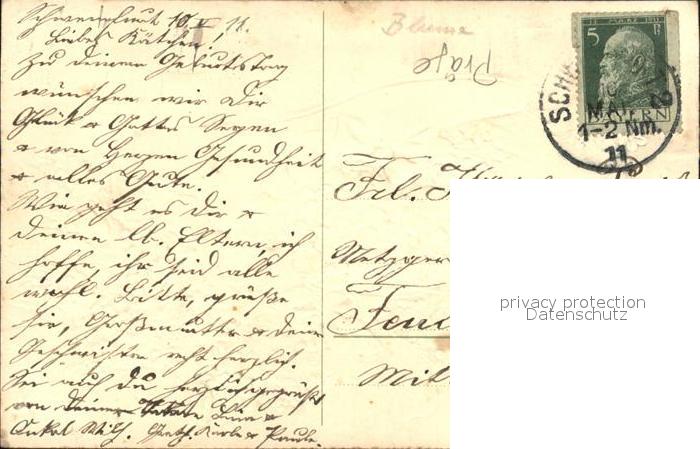 Schweinfurt 10. V. 11.
Liebes Kätchen!
Zu deinem Geburtstag
wünschen wir Dir
Glück & Gottes Segen
& von Herzen Gesundheit
& alles Gute.
Wie geht es dir &
deinen lb. Eltern, ich
hoffe, ihr seid alle
wohl. Bitte, grüße
sie, Großmutter & deine
Geschwister recht herzlich.
Sei auch du herzlich gegrüßt
von deiner Tante &
Onkel Wilh. Karle & Paula.
Blume
Präge
11. MÄRZ 1911
5 Pf
BAYERN
SCH 2
10
MAI
1-2 Nm.
11
Frl.
Metzger
Mit
privacy protection
Datenschutz